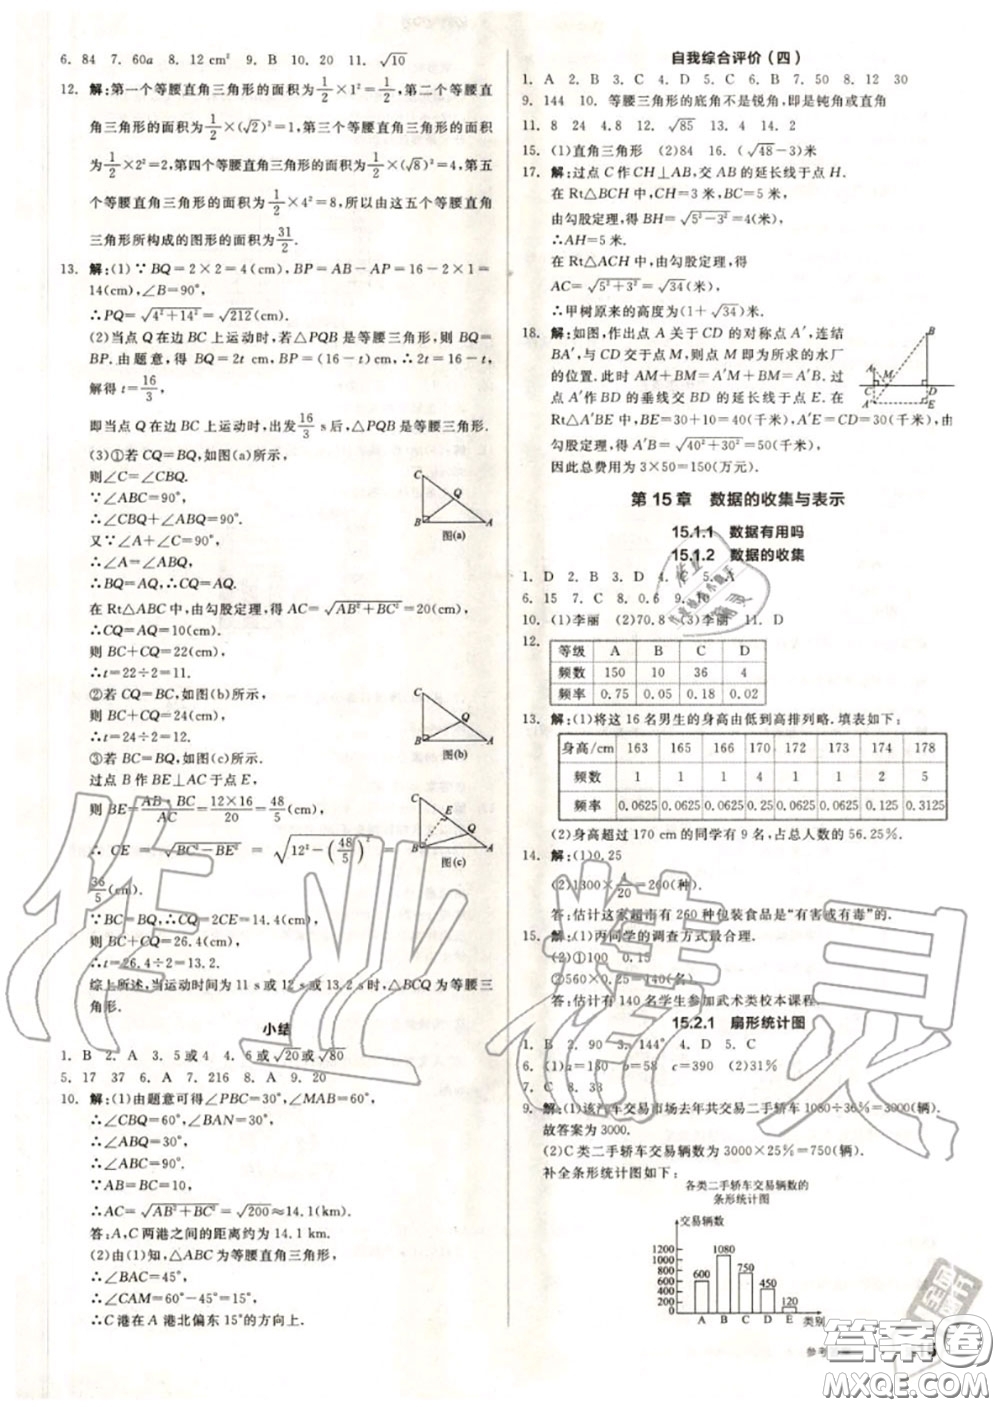 6. 84  7. 60a  8. 12 cm²  9. B  10. 20  11. √10
12. 解:第一个等腰直角三角形的面积为1/2×1²=1/2,第二个等腰直
角三角形的面积为1/2×(√2)²=1,第三个等腰直角三角形的面积
为1/2×2²=2,第四个等腰直角三角形的面积为1/2×(√8)²=4,第五
个等腰直角三角形的面积为1/2×4²=8,所以由这五个等腰直角
三角形所构成的图形的面积为31/2.
13. 解:(1)∵BQ=2×2=4(cm),BP=AB-AP=16-2×1=
14(cm),∠B=90°,
∴PQ=√(4²+14²)=√212(cm).
(2)当点Q在边BC上运动时,若△PQB是等腰三角形,则BQ=
BP.由题意,得BQ=2t cm,BP=(16-t)cm,∴2t=16-t,
解得t=16/3,
即当点Q在边BC上运动时,出发16/3 s后,△PQB是等腰三角形.
(3)①若CQ=BQ,如图(a)所示,
则∠C=∠CBQ.
∵∠ABC=90°,
∴∠CBQ+∠ABQ=90°.
又∵∠A+∠C=90°,
∴∠A=∠ABQ,
∴BQ=AQ,∴CQ=AQ.
在Rt△ABC中,由勾股定理,得AC=√(AB²+BC²)=20(cm),
∴CQ=AQ=10(cm),
∴BC+CQ=22(cm),
∴t=22÷2=11.
②若BC=CQ,如图(b)所示,
则BC+CQ=24(cm),
∴t=24÷2=12.
③若BC=BQ,如图(c)所示.
过点B作BE⊥AC于点E,
则BE=AB·BC/AC=12×16/20=48/5(cm),
∴CE=√(BC²-BE²)=√(12²-(48/5)²)=
36/5(cm).
∵BC=BQ,∴CQ=2CE=14.4(cm),
则BC+CQ=26.4(cm),
∴t=26.4÷2=13.2.
综上所述,当运动时间为11 s或12 s或13.2 s时,△BCQ为等腰三
角形.
C Q B A 图(a)
C Q B A 图(b)
C E Q B A 图(c)
小结
1. B  2. A  3. 5或4  4. 6或√20或√80
5. 17  37  6. A  7. 216  8. A  9. 20
10. 解:(1)由题意可得∠PBC=30°,∠MAB=60°,
∴∠CBQ=60°,∠BAN=30°,
∴∠ABQ=30°,
∴∠ABC=90°.
∵AB=BC=10,
∴AC=√(AB²+BC²)=√200≈14.1(km).
答:A,C两港之间的距离约为14.1 km.
(2)由(1)知,△ABC为等腰直角三角形,
∴∠BAC=45°,
∴∠CAM=60°-45°=15°,
∴C港在A港北偏东15°的方向上.
自我综合评价(四)
1. A  2. B  3. C  4. C  5. B  6. B  7. 50  8. 12  30
9. 144  10. 等腰三角形的底角不是锐角,即是钝角或直角
11. 8  24  4.8  12. √85  13. 4  14. 2
15. (1)直角三角形  (2)84  16. (√48-3)米
17. 解:过点C作CH⊥AB,交AB的延长线于点H.
在Rt△BCH中,CH=3米,BC=5米,
由勾股定理,得BH=√(5²-3²)=4(米),
∴AH=5米.
在Rt△ACH中,由勾股定理,得
AC=√(5²+3²)=√34(米),
∴甲树原来的高度为(1+√34)米.
18. 解:如图,作出点A关于CD的对称点A′,连结
BA′,与CD交于点M,则点M即为所求的水厂
的位置.此时AM+BM=A′M+BM=A′B.过
点A′作BD的垂线交BD的延长线于点E.在
Rt△A′BE中,BE=30+10=40(千米),A′E=CD=30(千米),由
勾股定理,得A′B=√(40²+30²)=50(千米),
因此总费用为3×50=150(万元).
B A M C D A′ E
第15章 数据的收集与表示
15.1.1 数据有用吗
15.1.2 数据的收集
1. D  2. B  3. D  4. C  5. A
6. 15  7. C  8. 0.6  9. 10
10. (1)李丽  (2)70.8  (3)李丽  11. D
12. 等级 A B C D
频数 150 10 36 4
频率 0.75 0.05 0.18 0.02
13. 解:(1)将这16名男生的身高由低到高排列略.填表如下:
身高/cm 163 165 166 170 172 173 174 178
频数 1 1 4 1 1 1 2 5
频率 0.0625 0.0625 0.25 0.0625 0.0625 0.0625 0.125 0.3125
(2)身高超过170 cm的同学有9名,占总人数的56.25%.
14. 解:(1)0.25
(2)1300×4/20=260(种).
答:估计这家超市有260种包装食品是“有害或有毒”的.
15. 解:(1)丙同学的调查方式最合理.
(2)①100  0.15
②560×0.25=140(名).
答:估计有140名学生参加武术类校本课程.
15.2.1 扇形统计图
1. B  2. 90  3. 144°  4. D  5. C
6. (1)a=130  b=58%  c=390  (2)31%
7. C  8. 33
9. 解:(1)该汽车交易市场去年共交易二手轿车1080÷36%=3000(辆).
故答案为3000.
(2)C类二手轿车交易辆数为3000×25%=750(辆).
补全条形统计图如下:
各类二手轿车交易辆数的
条形统计图
交易辆数
1200
1000
800
600
400
200
0
600 1080 750 450 120
A B C D E 类别
作业精灵
答案卷
MXQE.COM